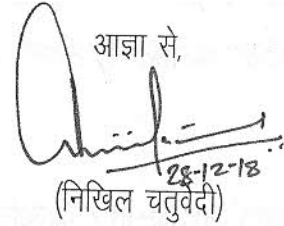 आज्ञा से,
28-12-18
(निखिल चतुर्वेदी)